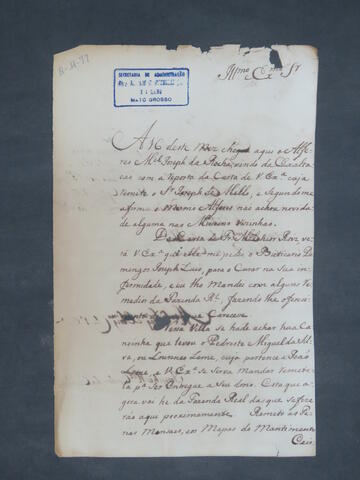 Illmo e Exmo Sr
SECRETARIA DE ADMINISTRAÇÃO
MATO GROSSO
A 16 deste Mez chegou aqui o Alfe
res Mel Joseph da Rocha, vindo de
com a reposta da Carta de V. Exa. cuja
remete o Sr Joseph de Mello, e Segundo me
afirma o mesmo Alferes não achou novida
de alguma nas Missions vizinhas.
Da Carta de Fr. Melchior Roiz ve
rá V Exa que elle me pedio o Boticario Do
mingos Joseph Luis, para o Curar na sua in
fermidade, e eu lho Mandei com alguns re
medios da Fazenda Rl, fazendo lhe ofereci
Carecese
Nessa Villa se hade achar hua Ca
ninha que levou o Pedreste Miguel da Sil
va, ou Lourenço Leme, cujo pertence a João
Leme, e V. Exa se sirva Mandar remetela
pa. Ser Entregue a Seu dono. Esta que a
gora vai he da Fazenda Real das que se fize
rão aqui proximamente. Remeto as Pe
nas Mensais, eos Mapas do Mantimento